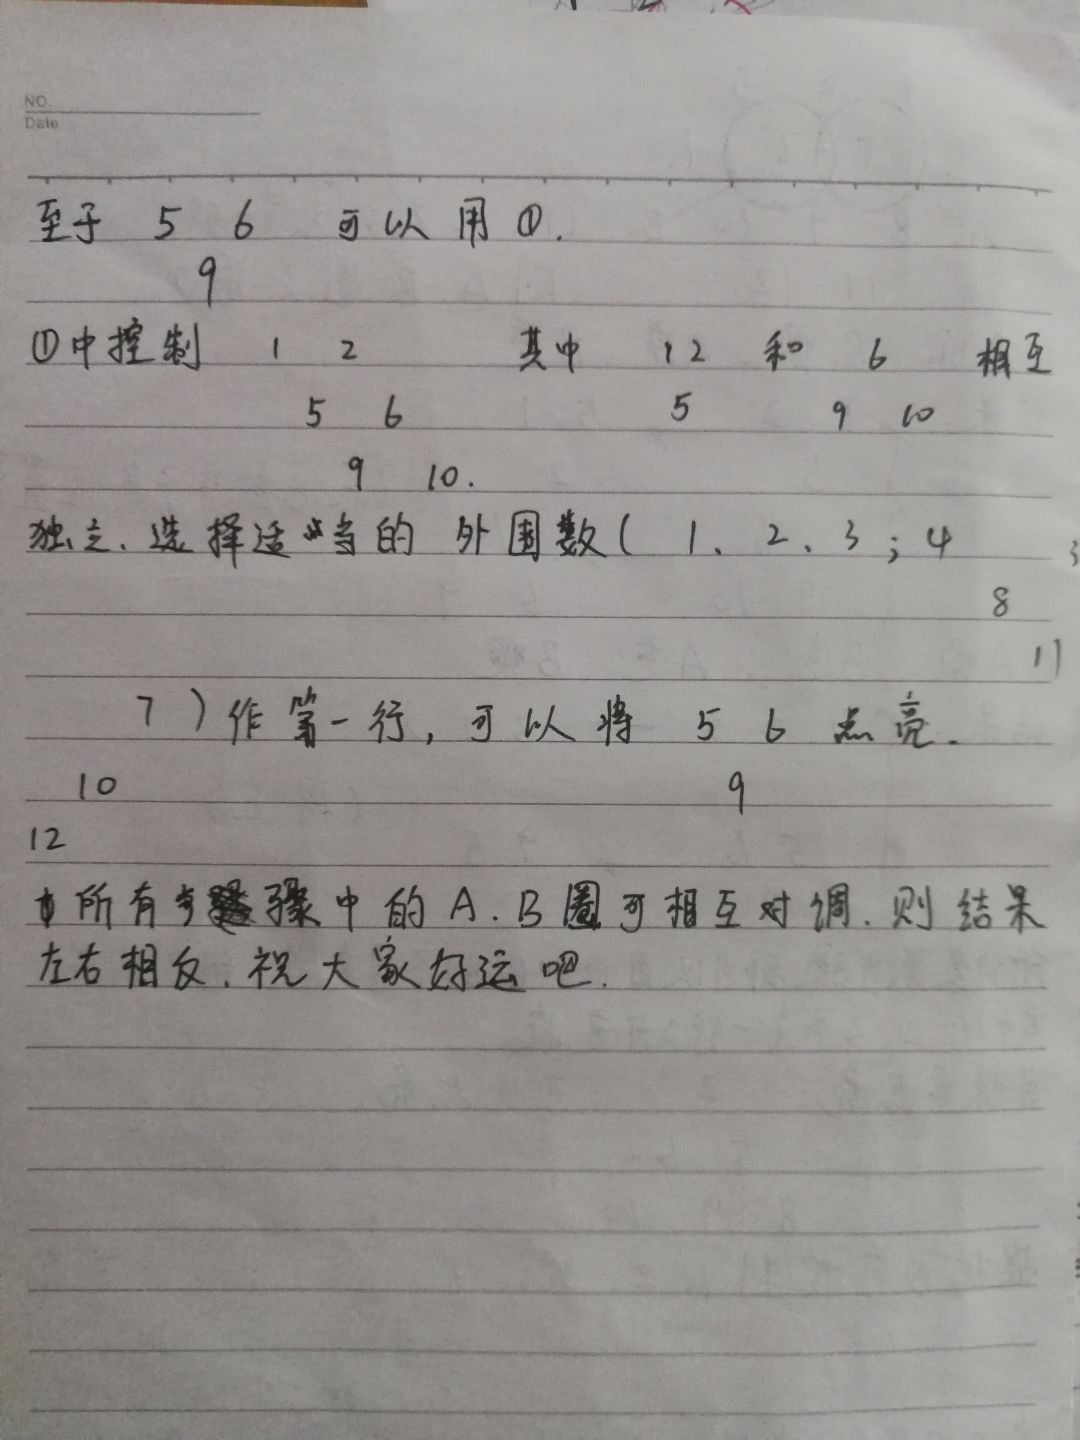 NO.
Date
至于 5 6 可以用①.
9
①中控制 1 2 其中 12 和 6 相互
5 6 5 9 10
9 10.
独立. 选择适当的外围数( 1、2、3; 4
8
11
7 )作第一行, 可以将 5 6 点亮.
10 9
12
所有骤中的A.B圈可相互对调. 则结果
左右相反. 祝大家好运吧.